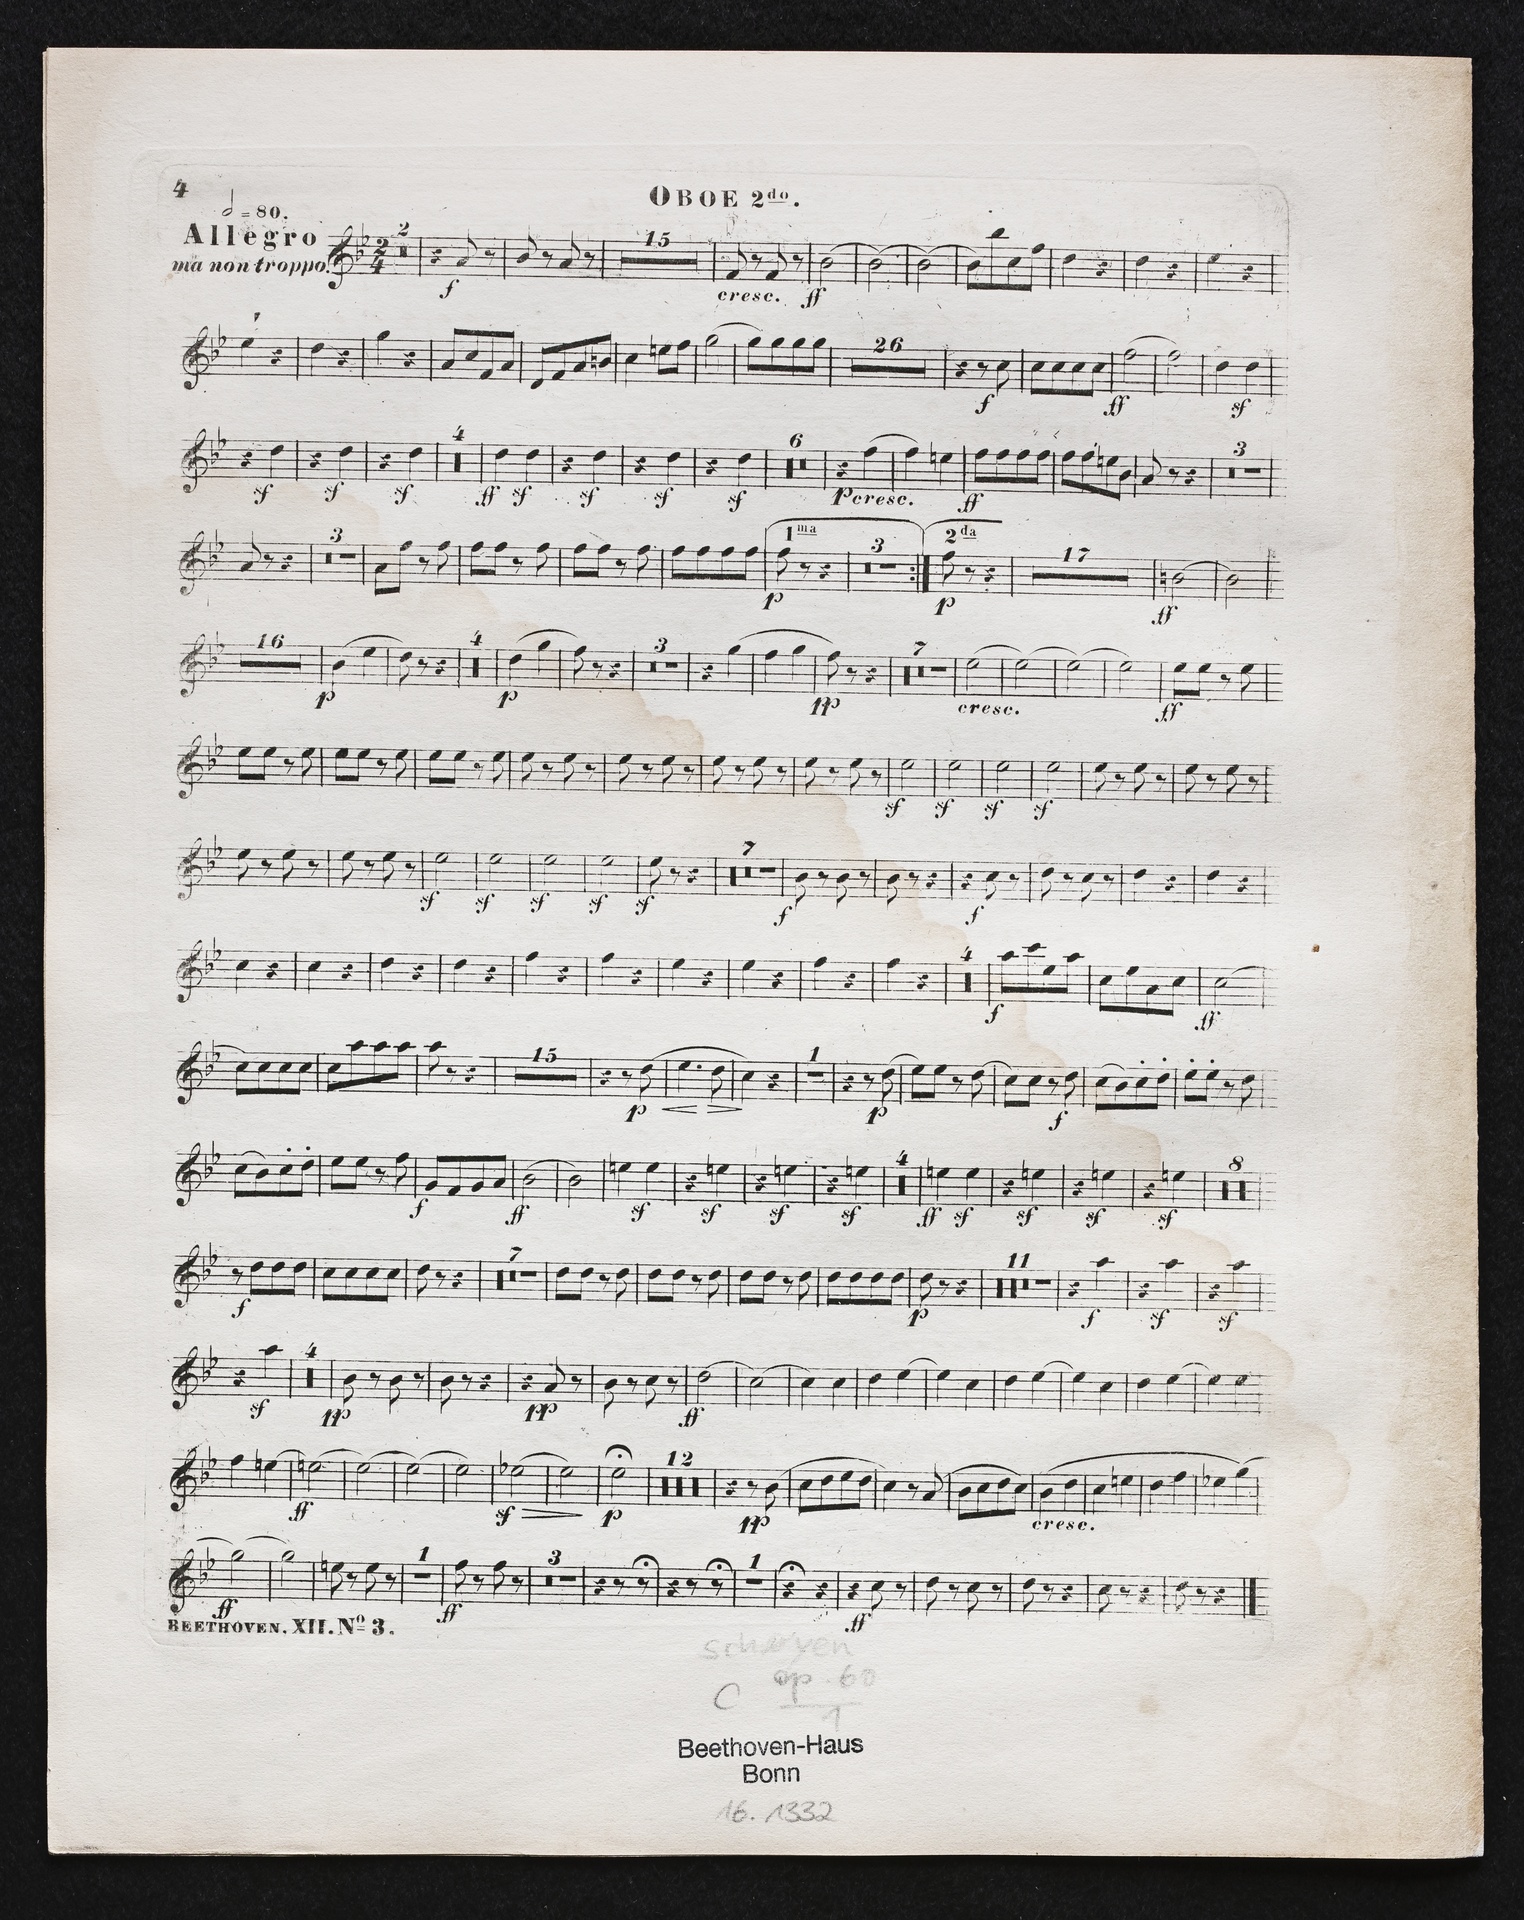 4
OBOE 2do.
𝅗𝅥 = 80.
Allegro
ma non troppo.
2
2 4
15
f cresc. ff
26
f ff sf
4 6 3
sf sf sf ff sf sf sf sf p cresc. ff
3 1ma 3 2da 17
p p ff
16 4 3 7
p p pp cresc. ff
sf sf sf sf
7
sf sf sf sf sf f f
4
f ff
15 1
p p f
4 8
f ff sf sf sf sf ff sf sf sf sf
7 11
f p f sf sf
4
sf pp pp ff
12
ff sf p pp cresc.
1 3 1
ff ff ff
BEETHOVEN. XII. No 3.
op. 60
C 1
Beethoven-Haus
Bonn
16. 1332